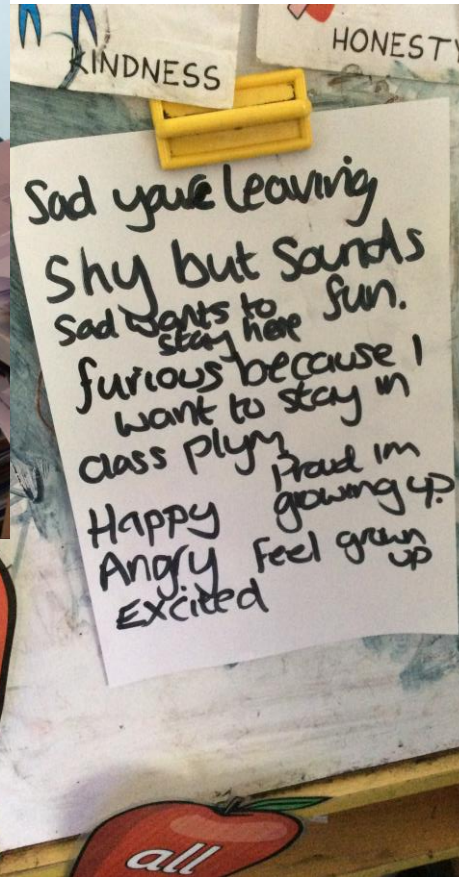 KINDNESS
HONESTY
Sad you're leaving
Shy but sounds fun.
Sad wants to stay here
furious because I
want to stay in
class plym
Proud Im
growing up.
Happy
Angry Feel grown up
Excited
all